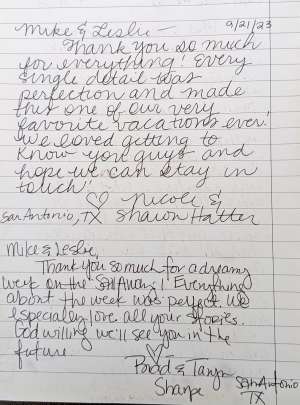 Mike & Leslie – 9/21/23
Thank you so much
for everything! Every
single detail was
perfection and made
this one of our very
favorite vacations ever!
We loved getting to
know you guys and
hope we can stay in
touch!
♡ Nicole &
San Antonio, TX Shawn Hatter
Mike & Leslie,
Thank you so much for a dreamy
week on the Sail Away! Everything
about the week was perfect. We
especially love all your stories.
God willing we'll see you in the
future.
♡
& Tanya
Sharpe San Antonio
TX